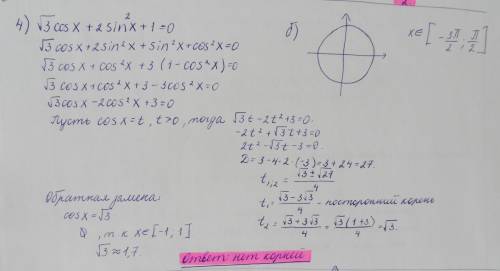 4) √3 cos x + 2 sin² x + 1 = 0
√3 cos x + 2 sin² x + sin² x + cos² x = 0
√3 cos x + cos² x + 3 (1 - cos² x) = 0
√3 cos x + cos² x + 3 - 3 cos² x = 0
√3 cos x - 2 cos² x + 3 = 0
Пусть cos x = t, t > 0, тогда √3 t - 2t² + 3 = 0
-2t² + √3 t + 3 = 0
2t² - √3 t - 3 = 0
D = 3 - 4·2·(-3) = 3 + 24 = 27
t₁,₂ = (√3 ± √27)/4
t₁ = (√3 - 3√3)/4 - посторонний корень
t₂ = (√3 + 3√3)/4 = √3(1+3)/4 = √3.
Обратная замена
cos x = √3
, т к x ∈ [-1, 1]
√3 ≈ 1,7
ответ: нет корней
б)
x ∈ [-3π/2; π/2]
2